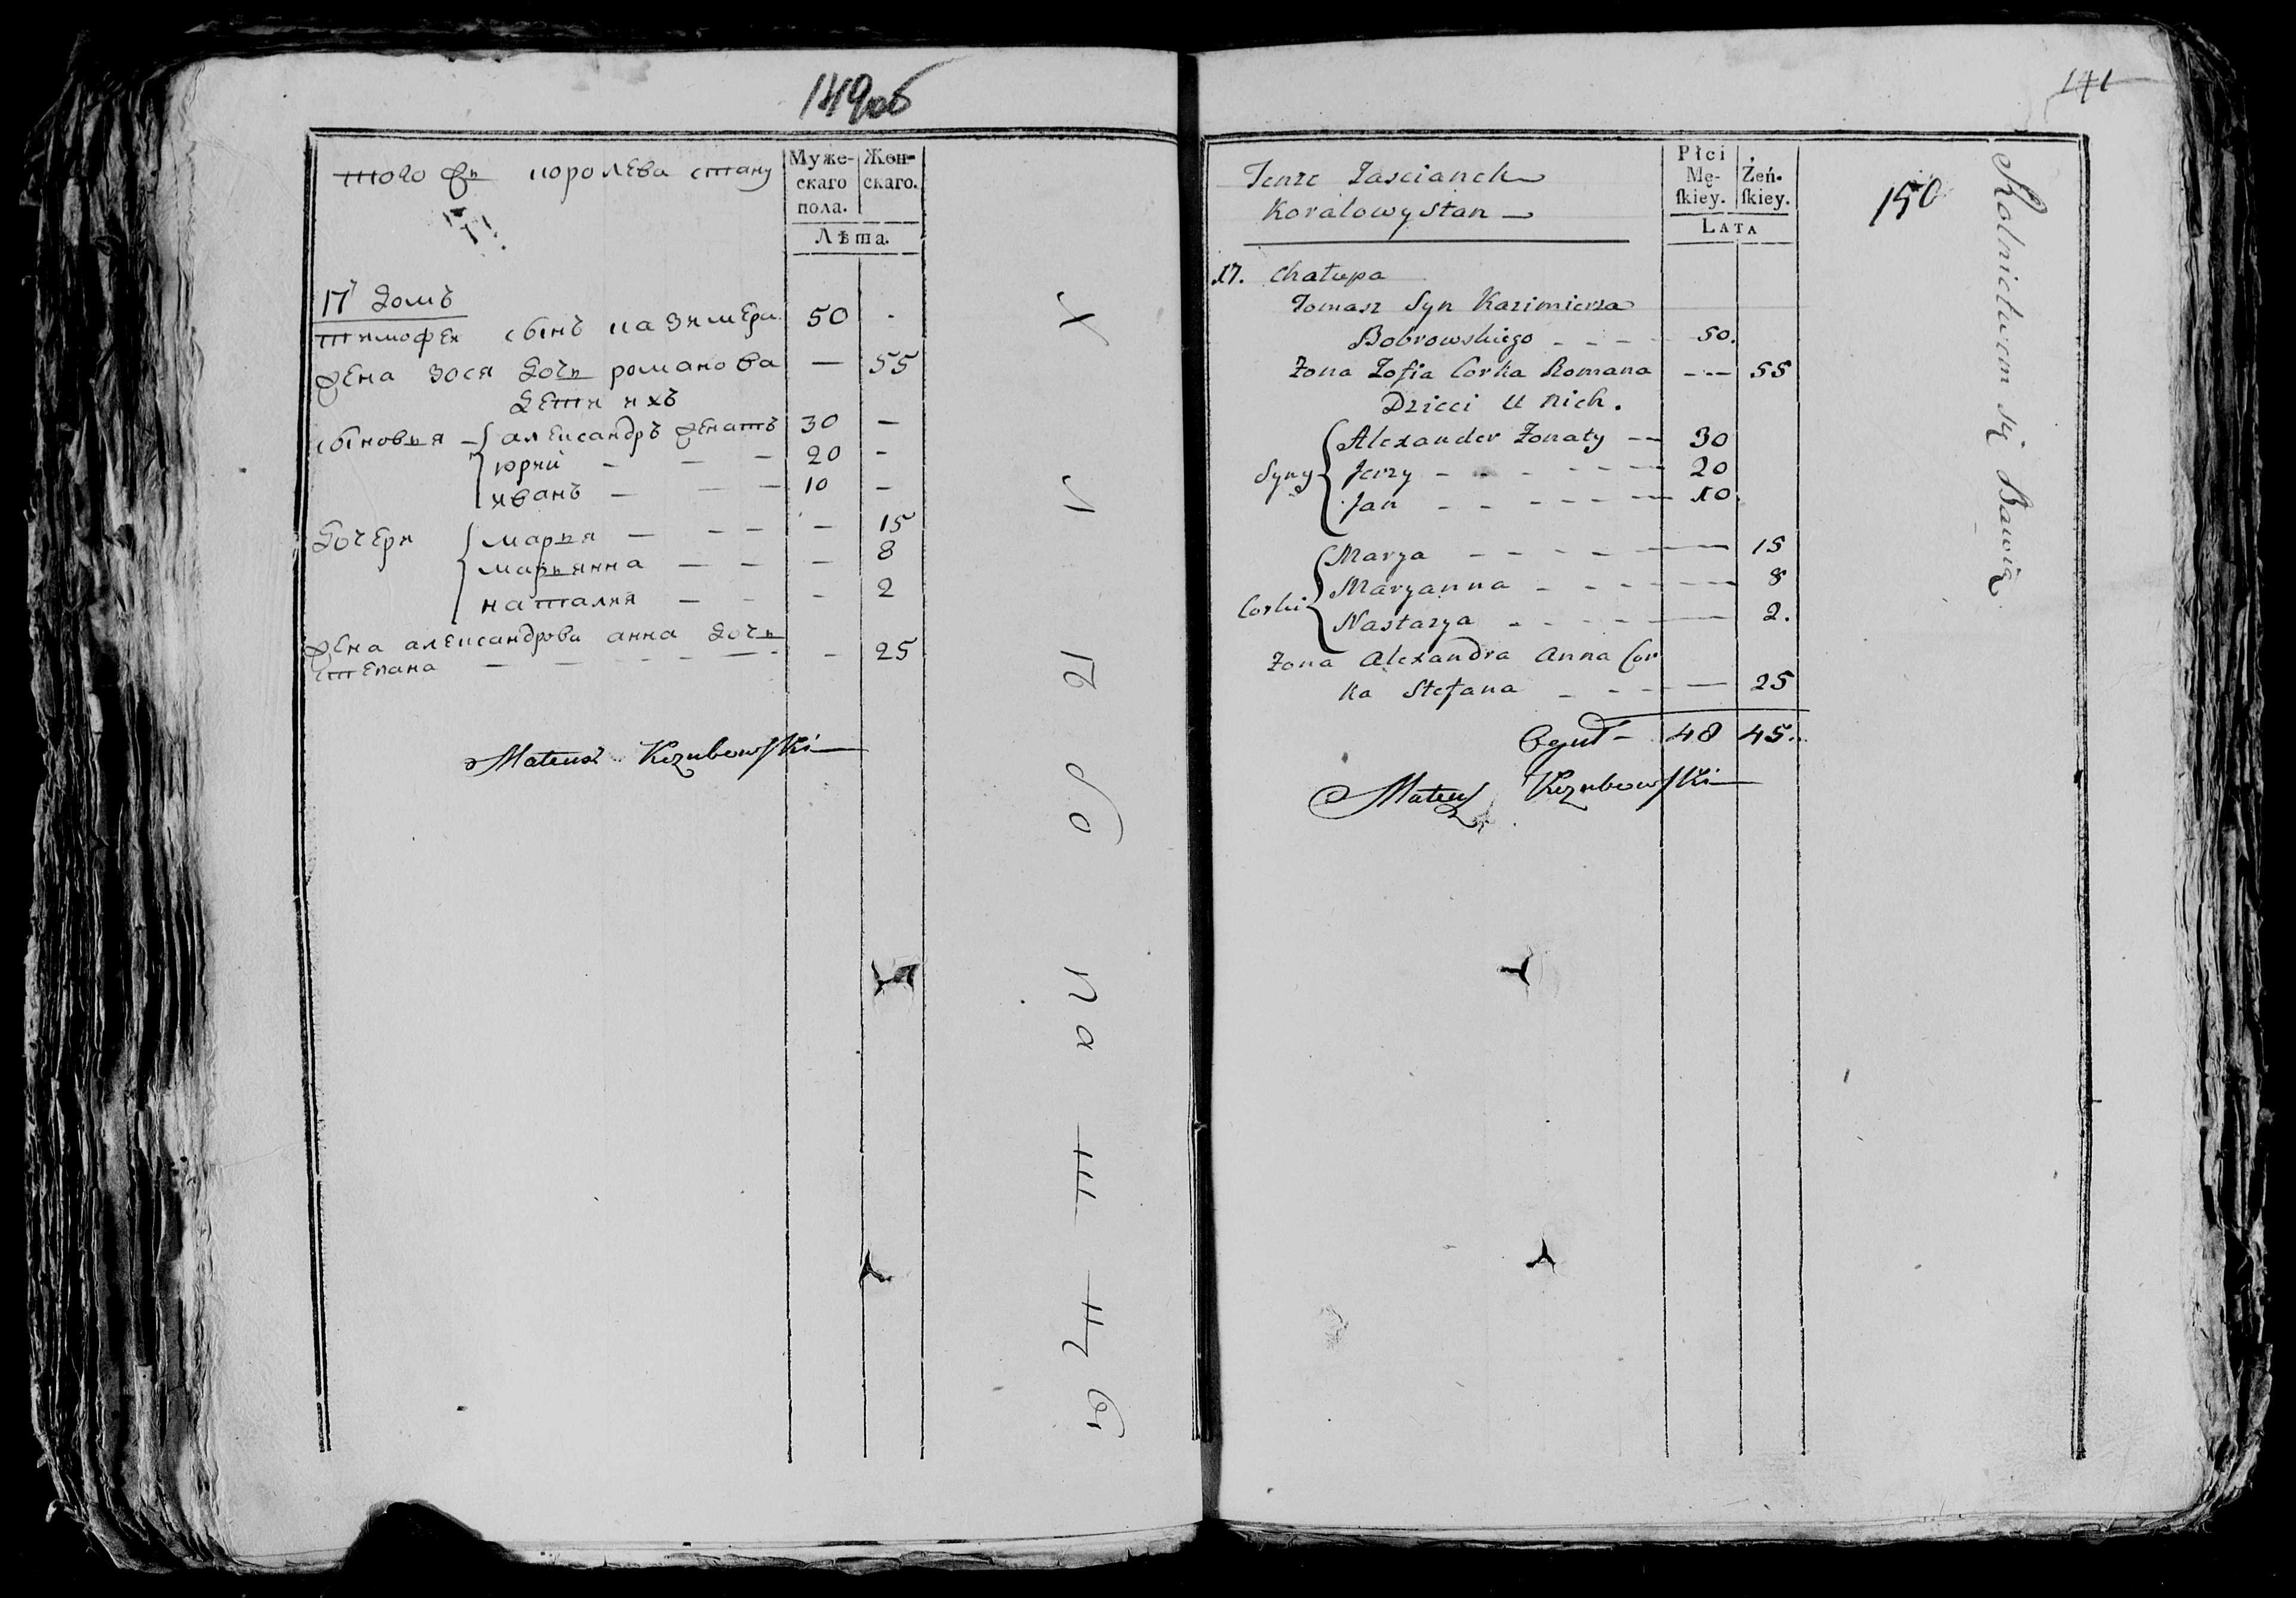 149об
того жь королева стану
Муже-
скаго
пола.
Жен-
скаго.
Лѣта.
17 домъ
тимофеи сынъ казимера 50 -
жена зося дочь романова — 55
дети ихъ
сыновья { александръ женатъ 30 —
юрий — — — 20 —
иванъ — — — 10 —
дочери { марья — — — — 15
марьянна — — — 8
наталия — - - 2
жена александрова анна дочь
степана — — - - — - — 25
Mateusz Kozubowski
141
150
Tenże Zascianek
Koralowy Stan
Płci
Mę-
ſkiey.
Żeń-
ſkiey.
LATA
17. Chałupa
Tomasz Syn Kazimierza
Bobrowskiego - - - - 50.
Zona Zofia Corka Romana - - — 55
Dzieci u nich.
Syny { Alexander Zonaty — — 30
Jerzy - - - - - — 20
Jan - - - - - — 10.
Corki { Marya - - - - — — 15
Maryanna - - - - — — 8
Nastazya - - - - — — 2.
Zona Alexandra Anna Cor
ka Stefana - - - — 25
Oguł - 48 45.
Mateusz Kozubowski
Rolnictwem się Bawią